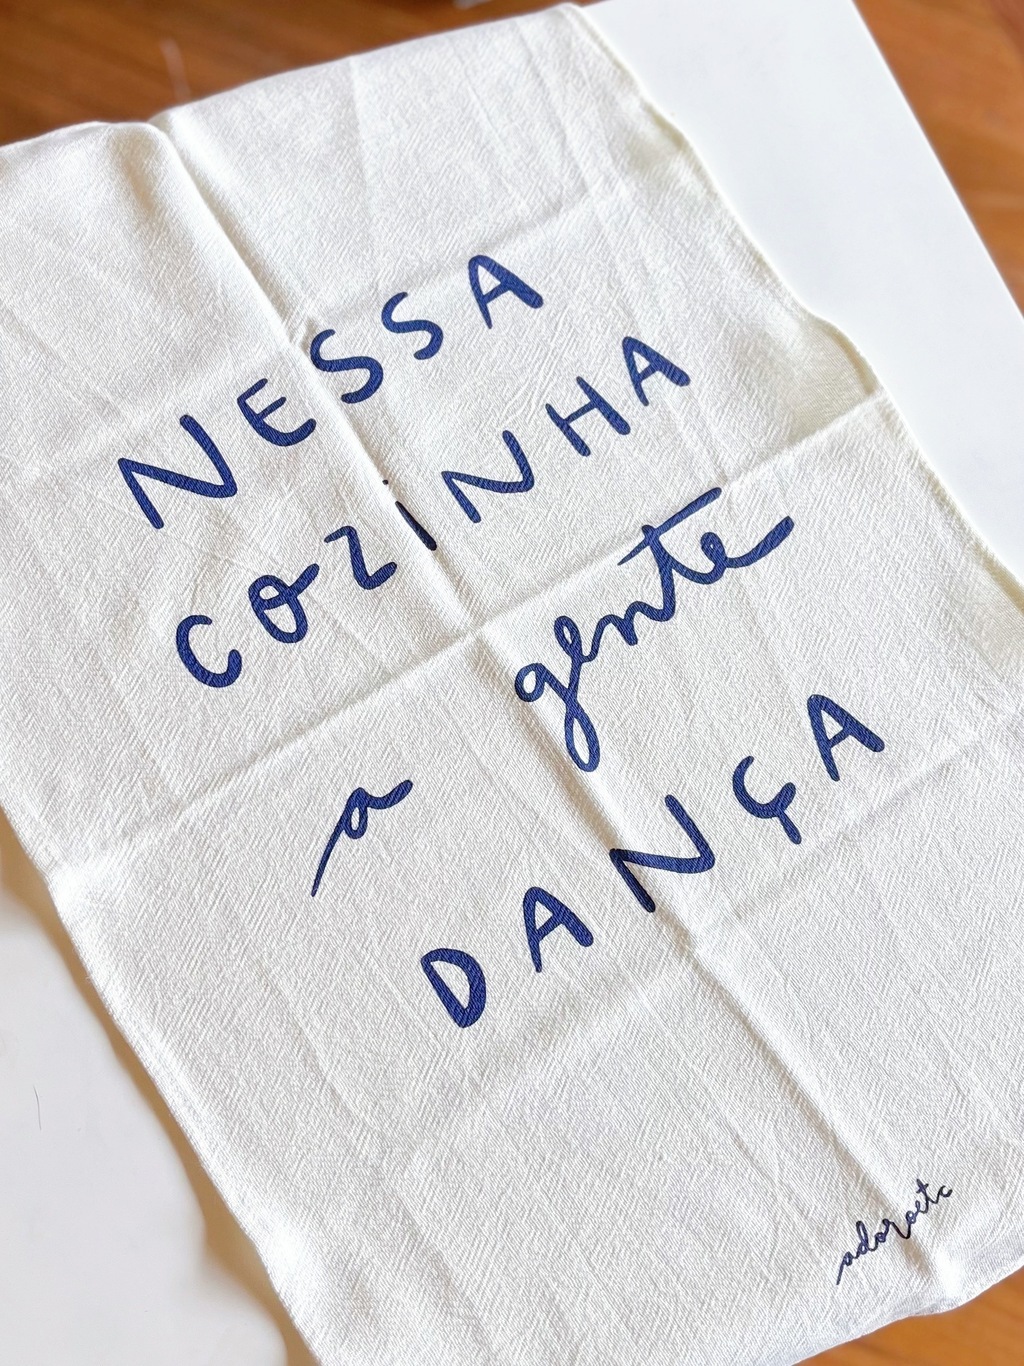 NESSA
COZINHA
a gente
DANÇA
adoroetc